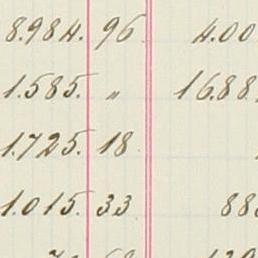 8.984. 96. 4.00
1.585. " 16.88
1.725. 18
1.015. 33 88